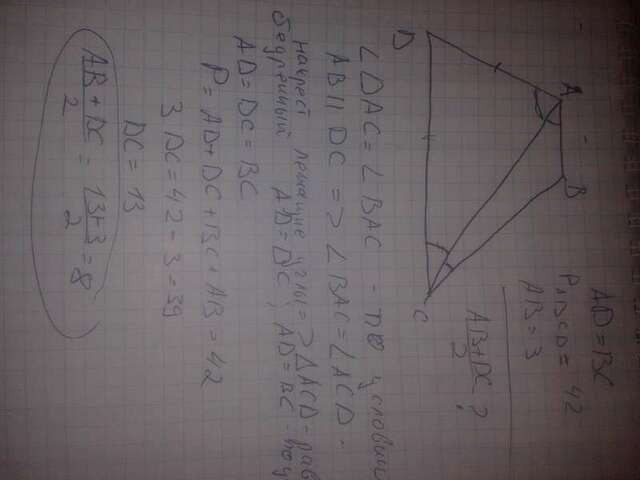 D
A
B
C
AD = BC
P ABCD = 42
AB = 3
AB + DC / 2 ?
∠DAC = ∠BAC - по условию
AB || DC => ∠BAC = ∠ACD -
накрест лежащие углы => △ACD - рав
бедренный AD = DC, AD = BC -
AD = DC = BC
P = AD + DC + BC + AB = 42
3 DC = 42 - 3 = 39
DC = 13
AB + DC / 2 = 13 + 3 / 2 = 8